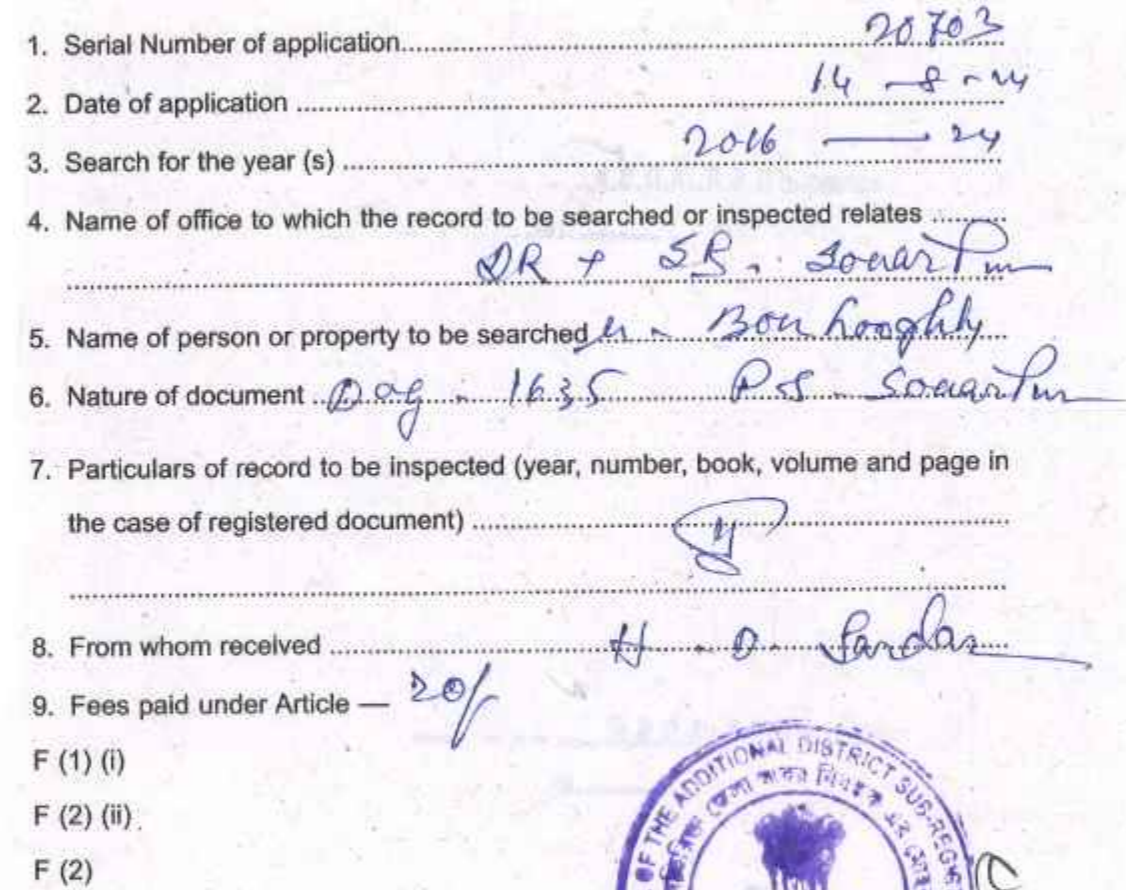 1. Serial Number of application.......... 20703
2. Date of application .......... 14 - 8 - 24
3. Search for the year (s) .......... 2016 —— 24
4. Name of office to which the record to be searched or inspected relates ..........
DR + SR. Sonarpur
5. Name of person or property to be searched .......... Bon hooghly
6. Nature of document .. Dag - 1635 P.S. Sonarpur
7. Particulars of record to be inspected (year, number, book, volume and page in
the case of registered document) ..........
8. From whom received .......... H. O. Sardar
9. Fees paid under Article — 20/-
F (1) (i)
F (2) (ii)
F (2)
OF THE ADDITIONAL DISTRICT SUB-REGIS